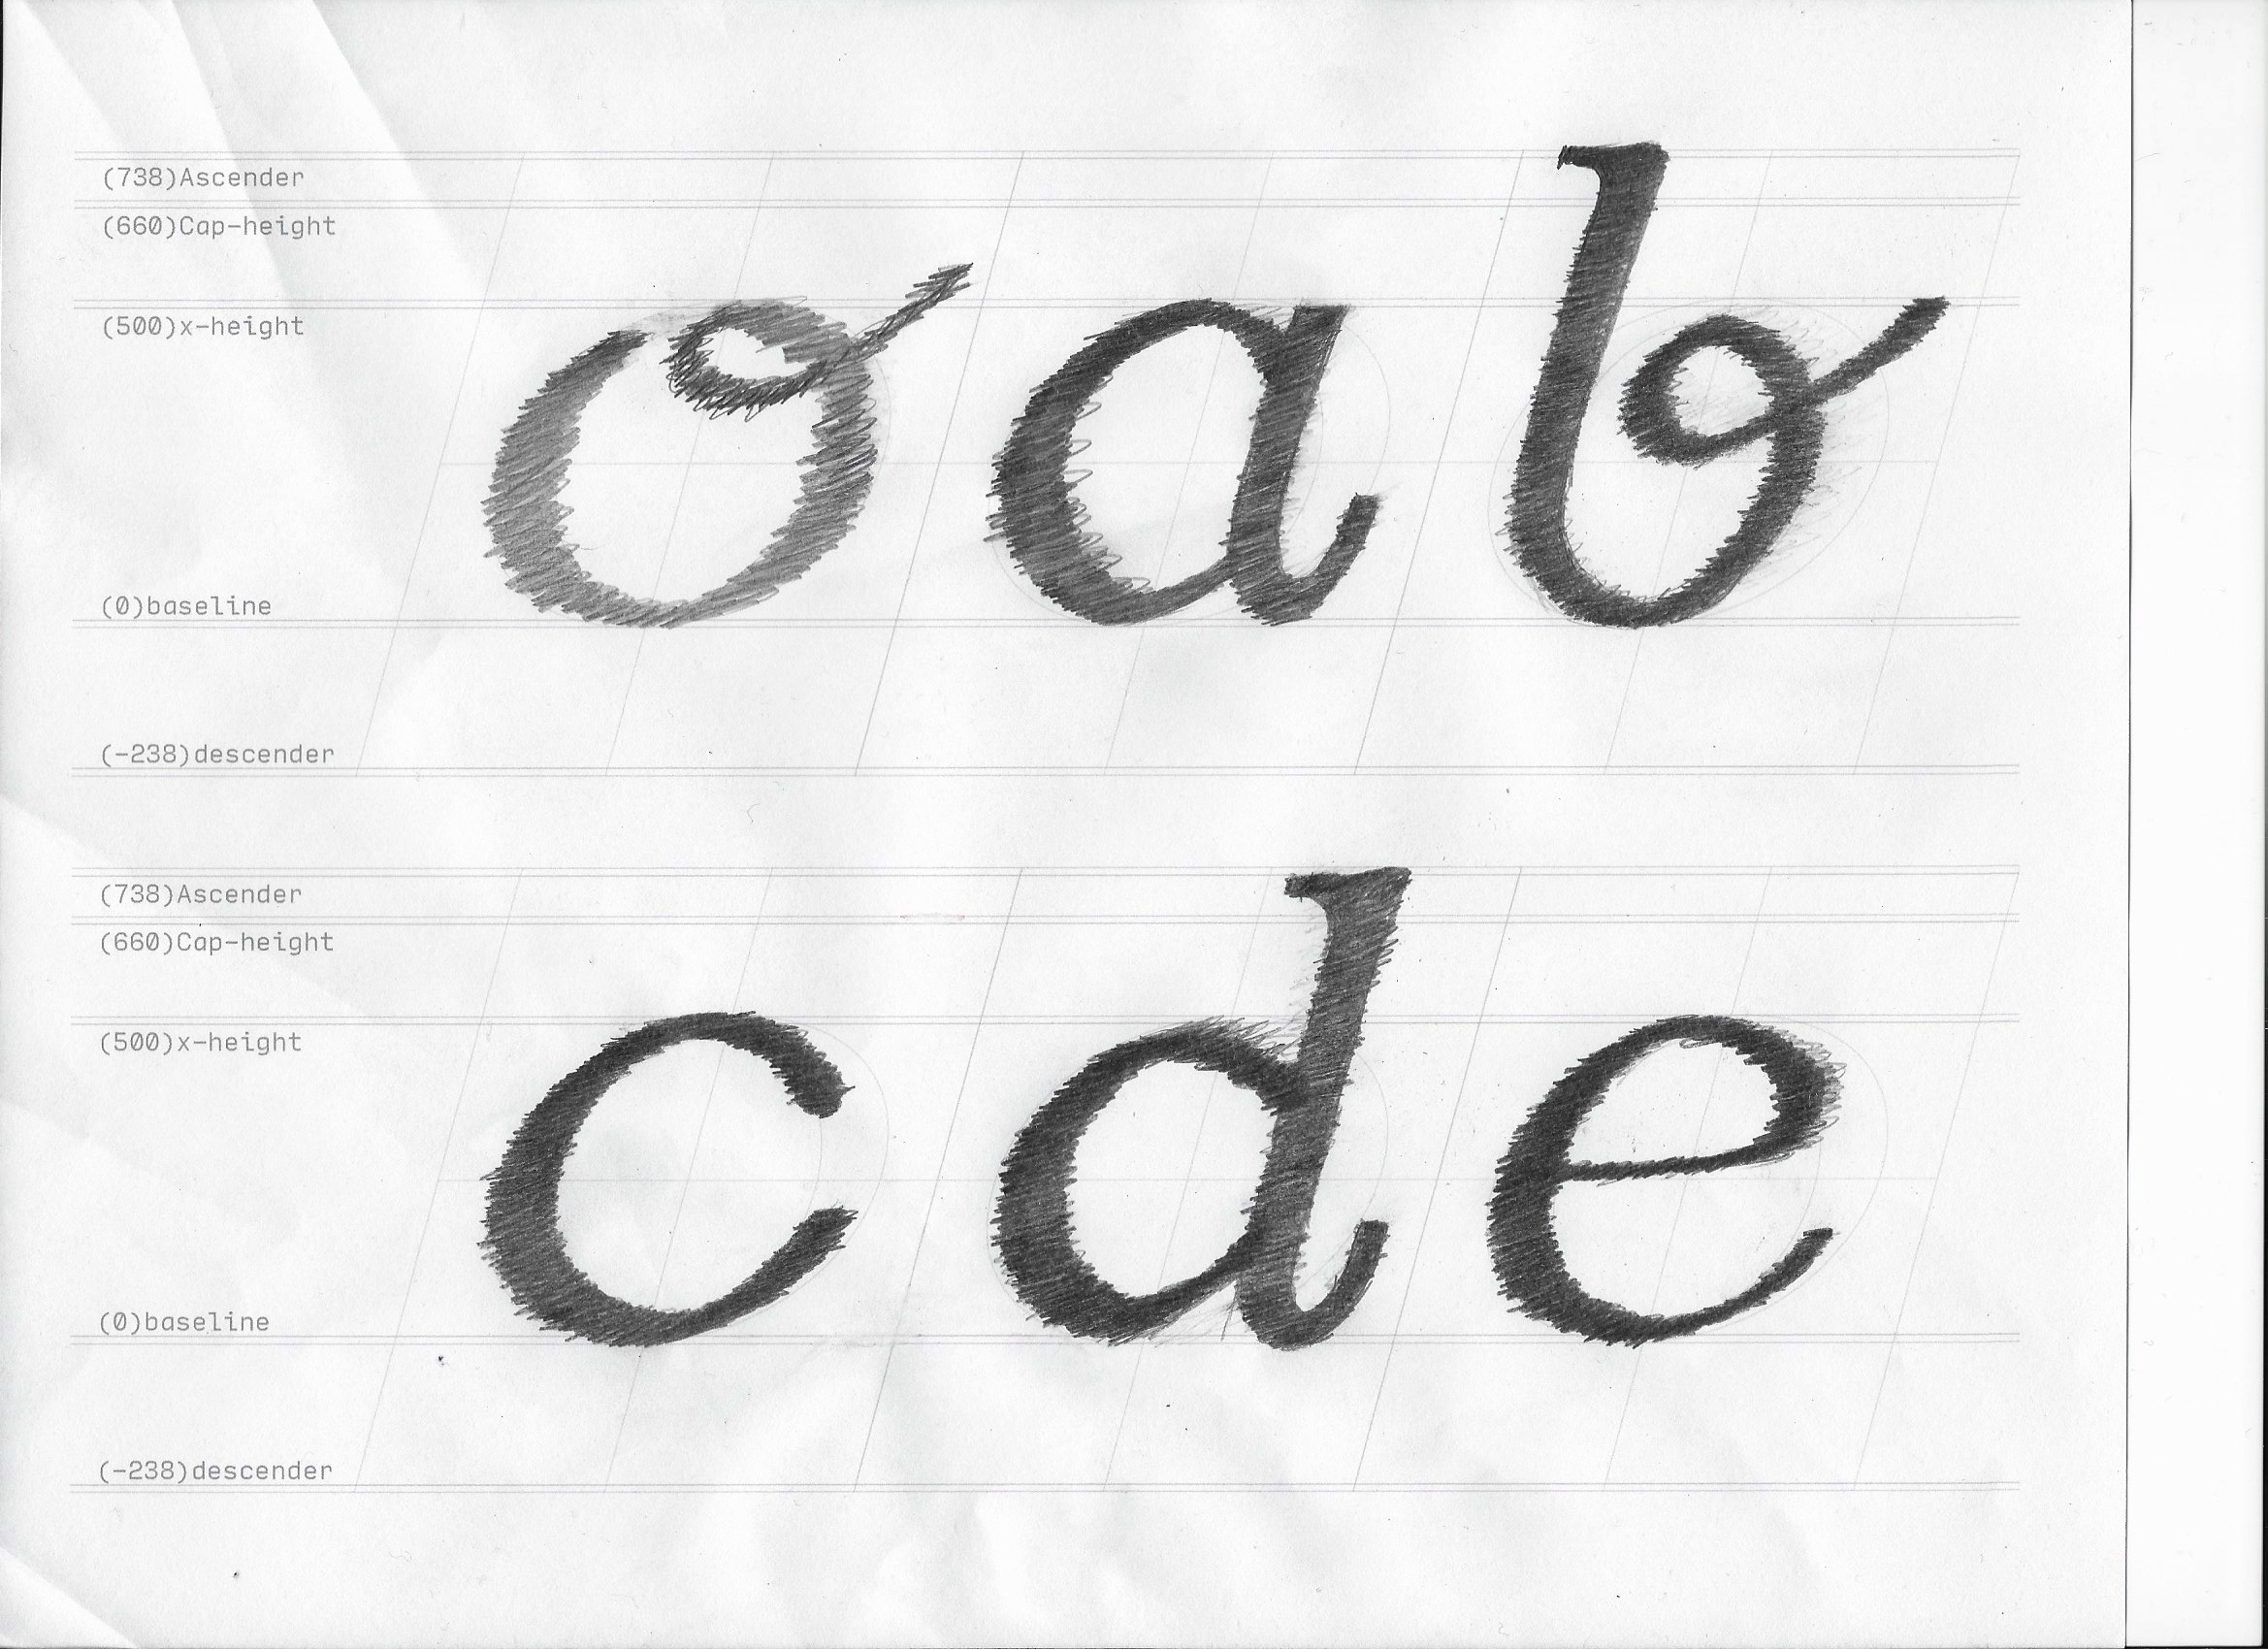 (738)Ascender
(660)Cap-height
(500)x-height
o a b
(0)baseline
(-238)descender
(738)Ascender
(660)Cap-height
(500)x-height
c d e
(0)baseline
(-238)descender